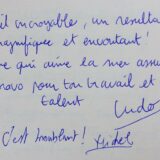 il incroyable, un resultat
magnifique et envoutant!
re qui aime la mer assu
ravo pour ton travail et
talent
Ludo
C'est troublant! Michel